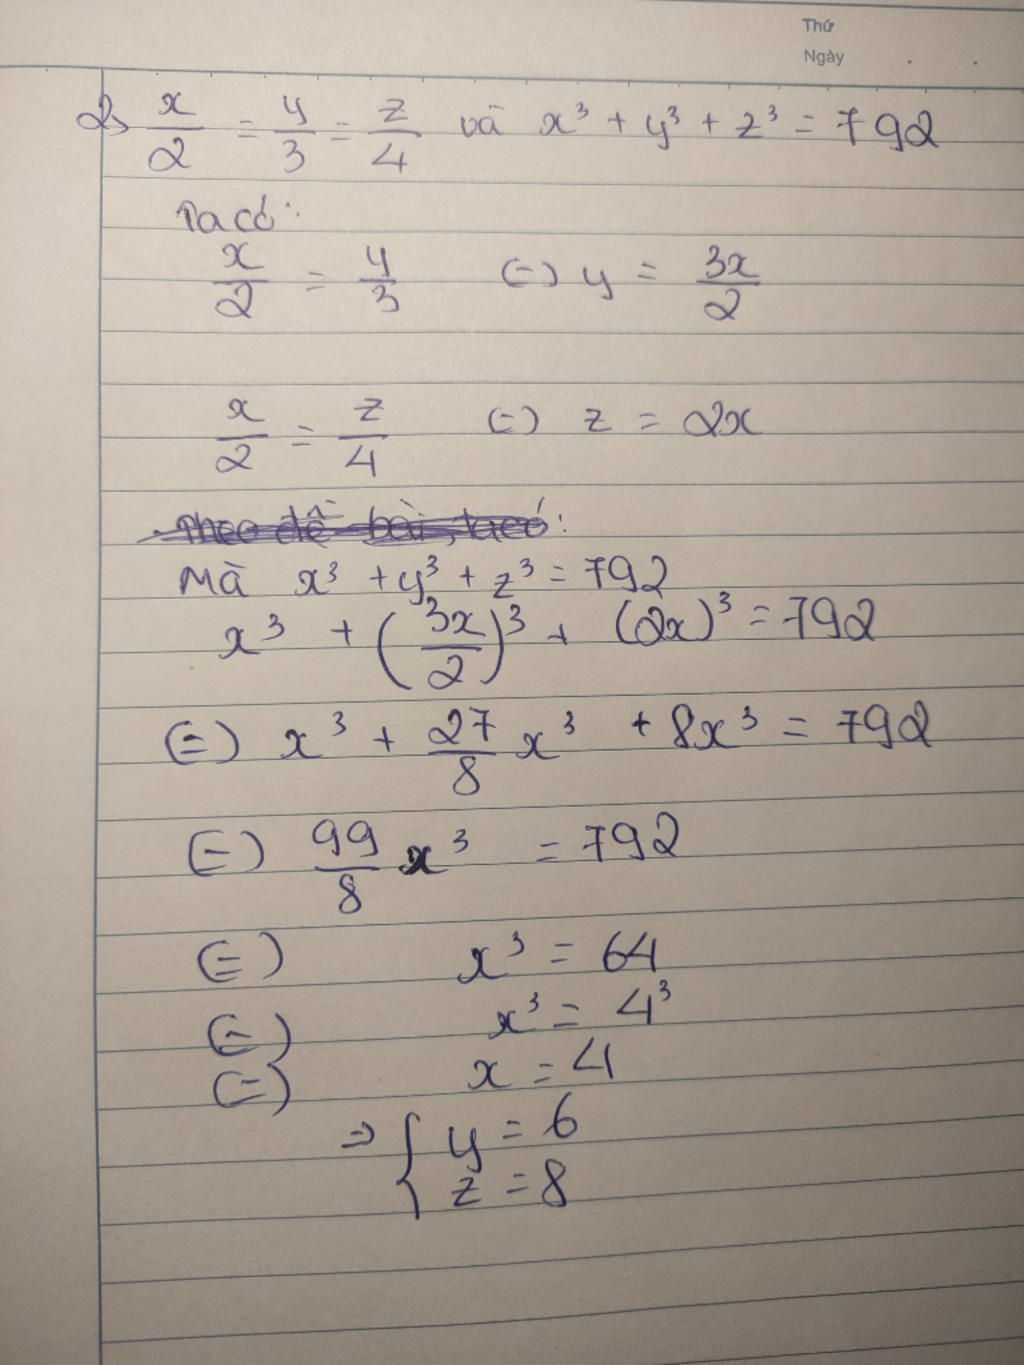 Thứ
Ngày
2, x/2 = y/3 = z/4 và x³ + y³ + z³ = 792
Ta có:
x/2 = y/3 (=) y = 3x/2
x/2 = z/4 (=) z = 2x
Theo đề bài, ta có:
Mà x³ + y³ + z³ = 792
x³ + (3x/2)³ + (2x)³ = 792
(=) x³ + 27/8 x³ + 8x³ = 792
(=) 99/8 x³ = 792
(=) x³ = 64
(=) x³ = 4³
(=) x = 4
=> { y = 6
z = 8